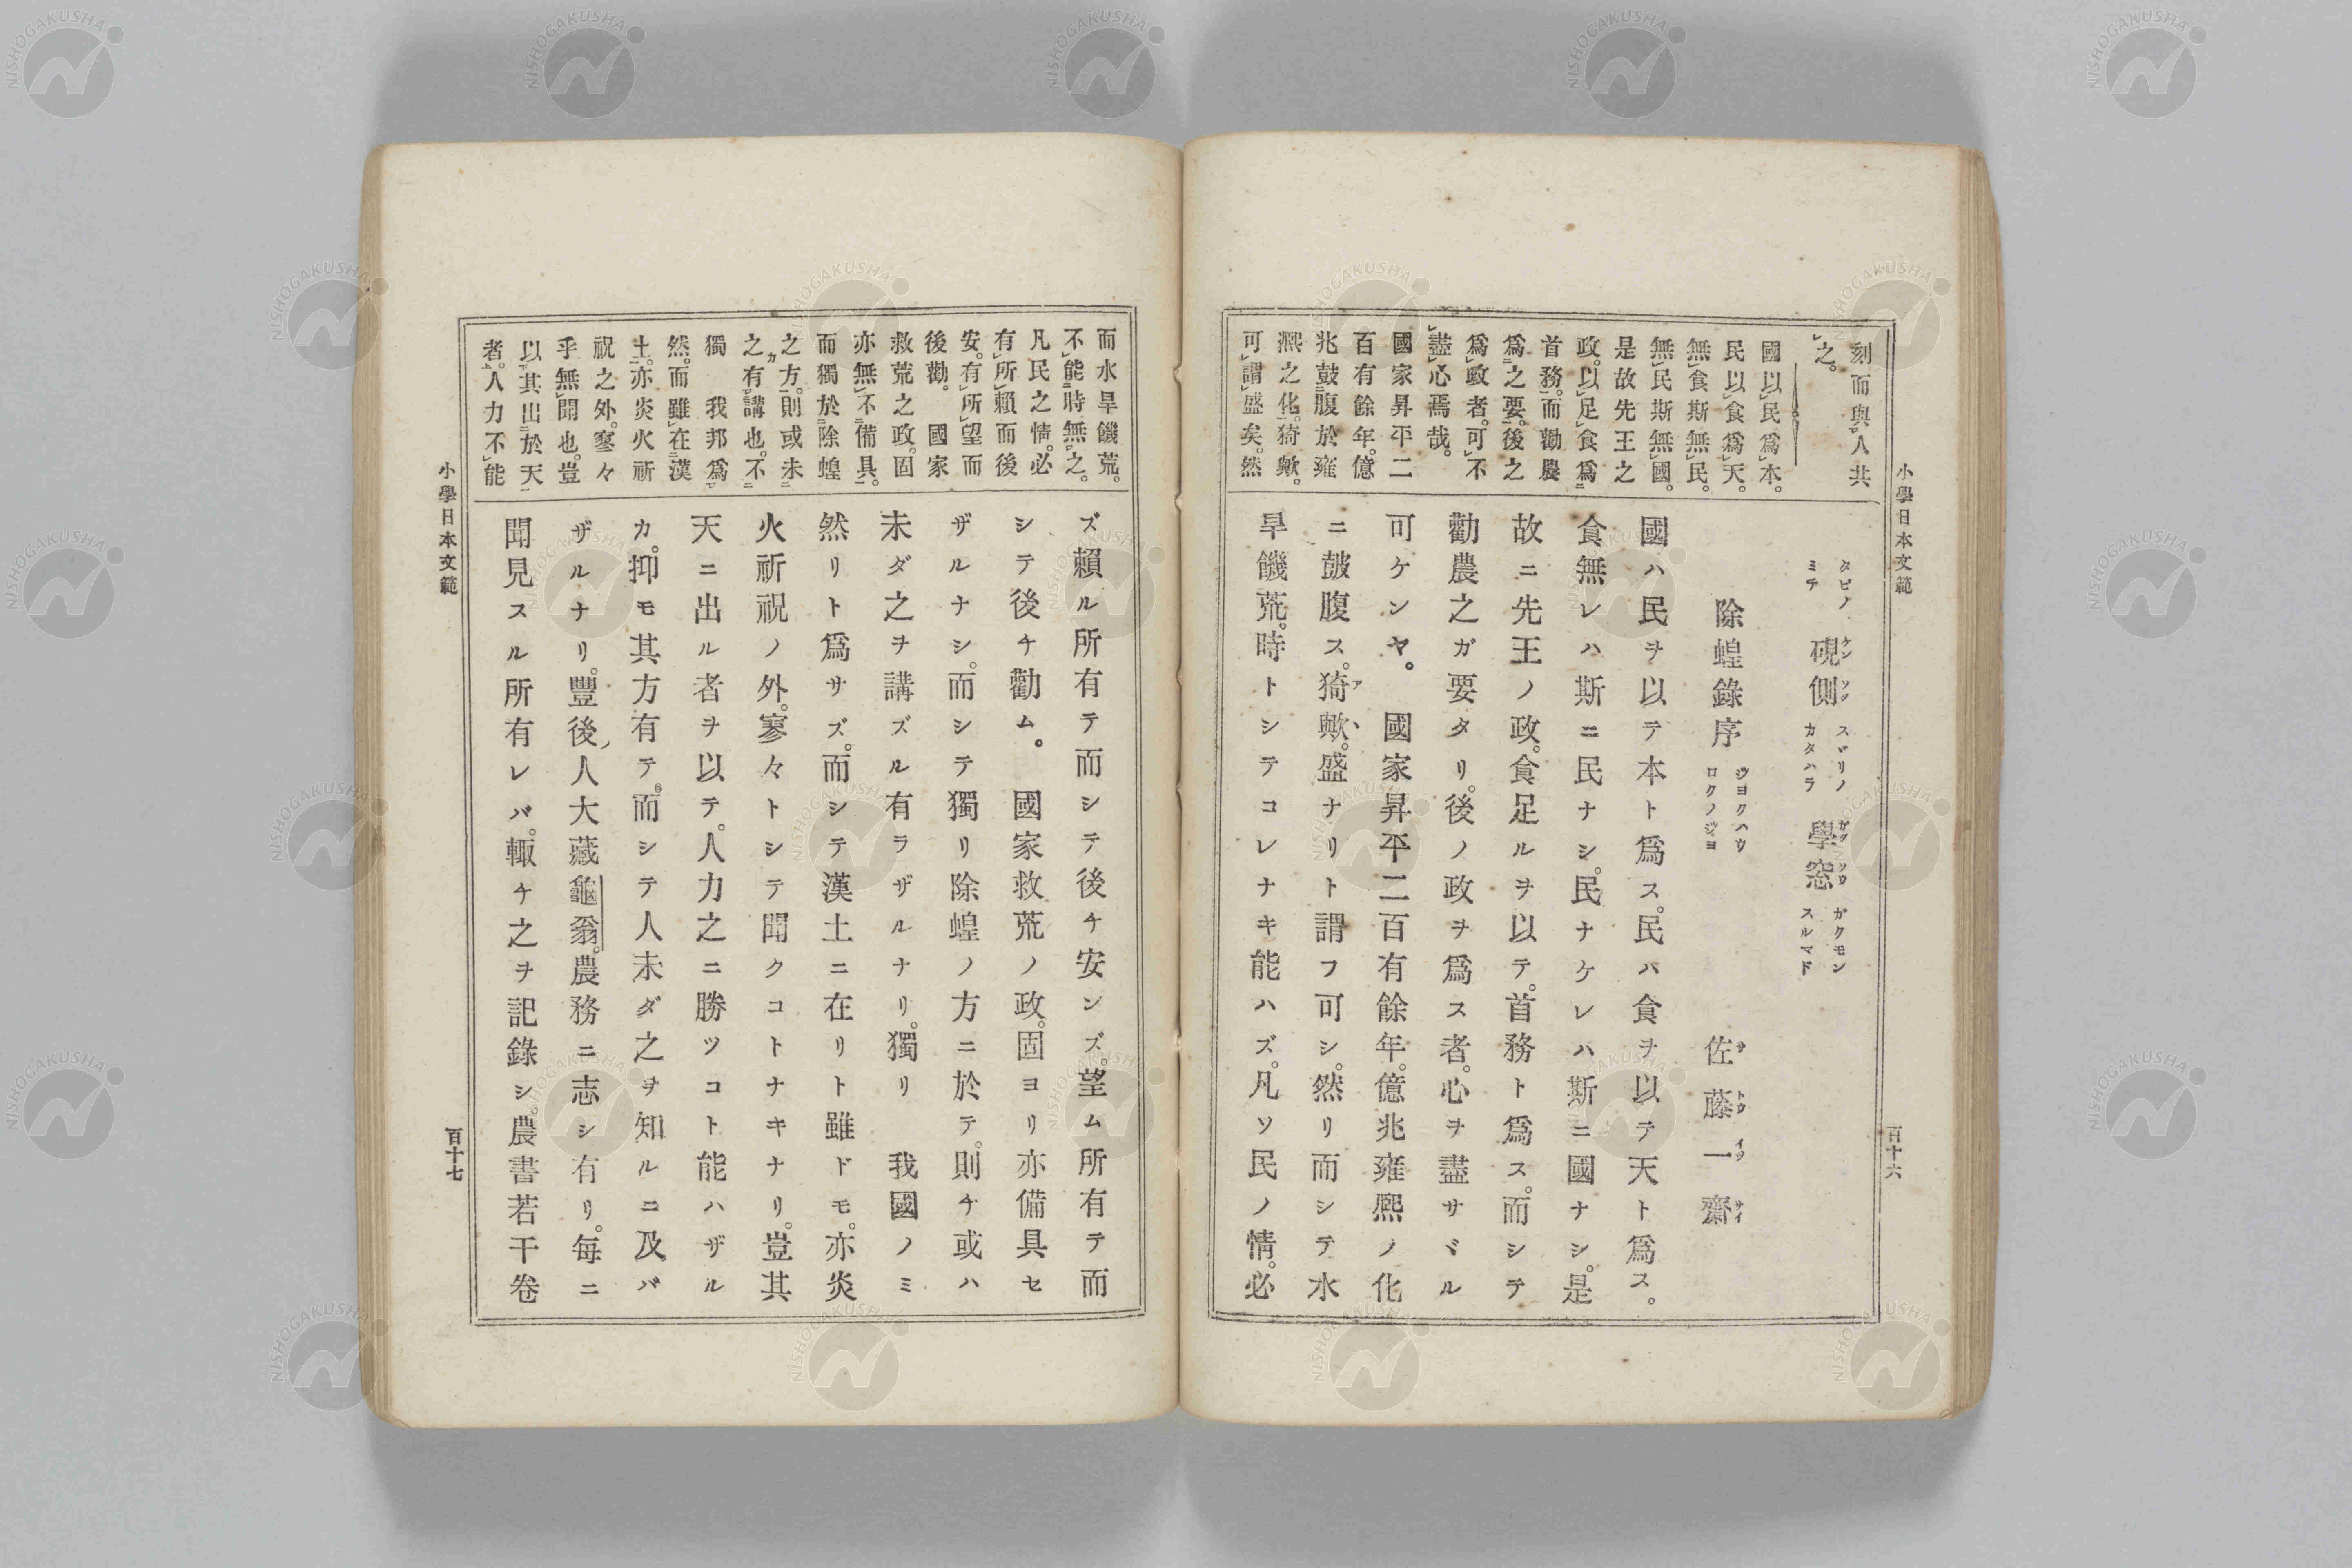 小學日本文範
百十六
刻而與人共
之。
國以民爲本。
民以食爲天。
無食斯無民。
無民斯無國。
是故先王之
政。以足食爲
首務。而勸農
爲之要。後之
爲政者。可不
盡心焉哉。
國家昇平二
百有餘年。億
兆鼓腹於雍
熙之化。猗歟。
可謂盛矣。然
タビノ
ミチ
硯側
ケンソク
スヾリノ
カタハラ
學窓
ガクソウ
ガクモン
スルマド
除蝗錄序
ジヨクハウ
ロクノジヨ
佐藤一齋
サトウイツサイ
國ハ民ヲ以テ本ト爲ス。民ハ食ヲ以テ天ト爲ス。
食無レハ斯ニ民ナシ。民ナケレハ斯ニ國ナシ。是
故ニ先王ノ政。食足ルヲ以テ。首務ト爲ス。而シテ
勸農之ガ要タリ。後ノ政ヲ爲ス者。心ヲ盡サヾル
可ケンヤ。 國家昇平二百有餘年。億兆雍熙ノ化
ニ皷腹ス。猗歟。盛ナリト謂フ可シ。然リ而シテ水
アヽ
旱饑荒。時トシテコレナキ能ハズ。凡ソ民ノ情。必
而水旱饑荒。
不能時無之。
凡民之情。必
有所賴而後
安。有所望而
後勸。 國家
救荒之政。固
亦無不備具。
而獨於除蝗
之方。則或未
之有講也。不
獨 我邦爲
然。而雖在漢
土。亦炎火祈
祝之外。寥々
乎無聞也。豈
以其出於天
者。人力不能
ズ賴ル所有テ而シテ後チ安ンズ。望ム所有テ而
シテ後チ勸ム。 國家救荒ノ政。固ヨリ亦備具セ
ザルナシ。而シテ獨リ除蝗ノ方ニ於テ。則チ或ハ
未ダ之ヲ講ズル有ラザルナリ。獨リ 我國ノミ
然リト爲サズ。而シテ漢土ニ在リト雖ドモ。亦炎
火祈祝ノ外。寥々トシテ聞クコトナキナリ。豈其
天ニ出ル者ヲ以テ。人力之ニ勝ツコト能ハザル
カ。抑モ其方有テ。而シテ人未ダ之ヲ知ルニ及バ
ザルナリ。豐後ノ人大藏龜翁。農務ニ志シ有リ。每ニ
聞見スル所有レバ。輙チ之ヲ記錄シ。農書若干卷
小學日本文範
百十七